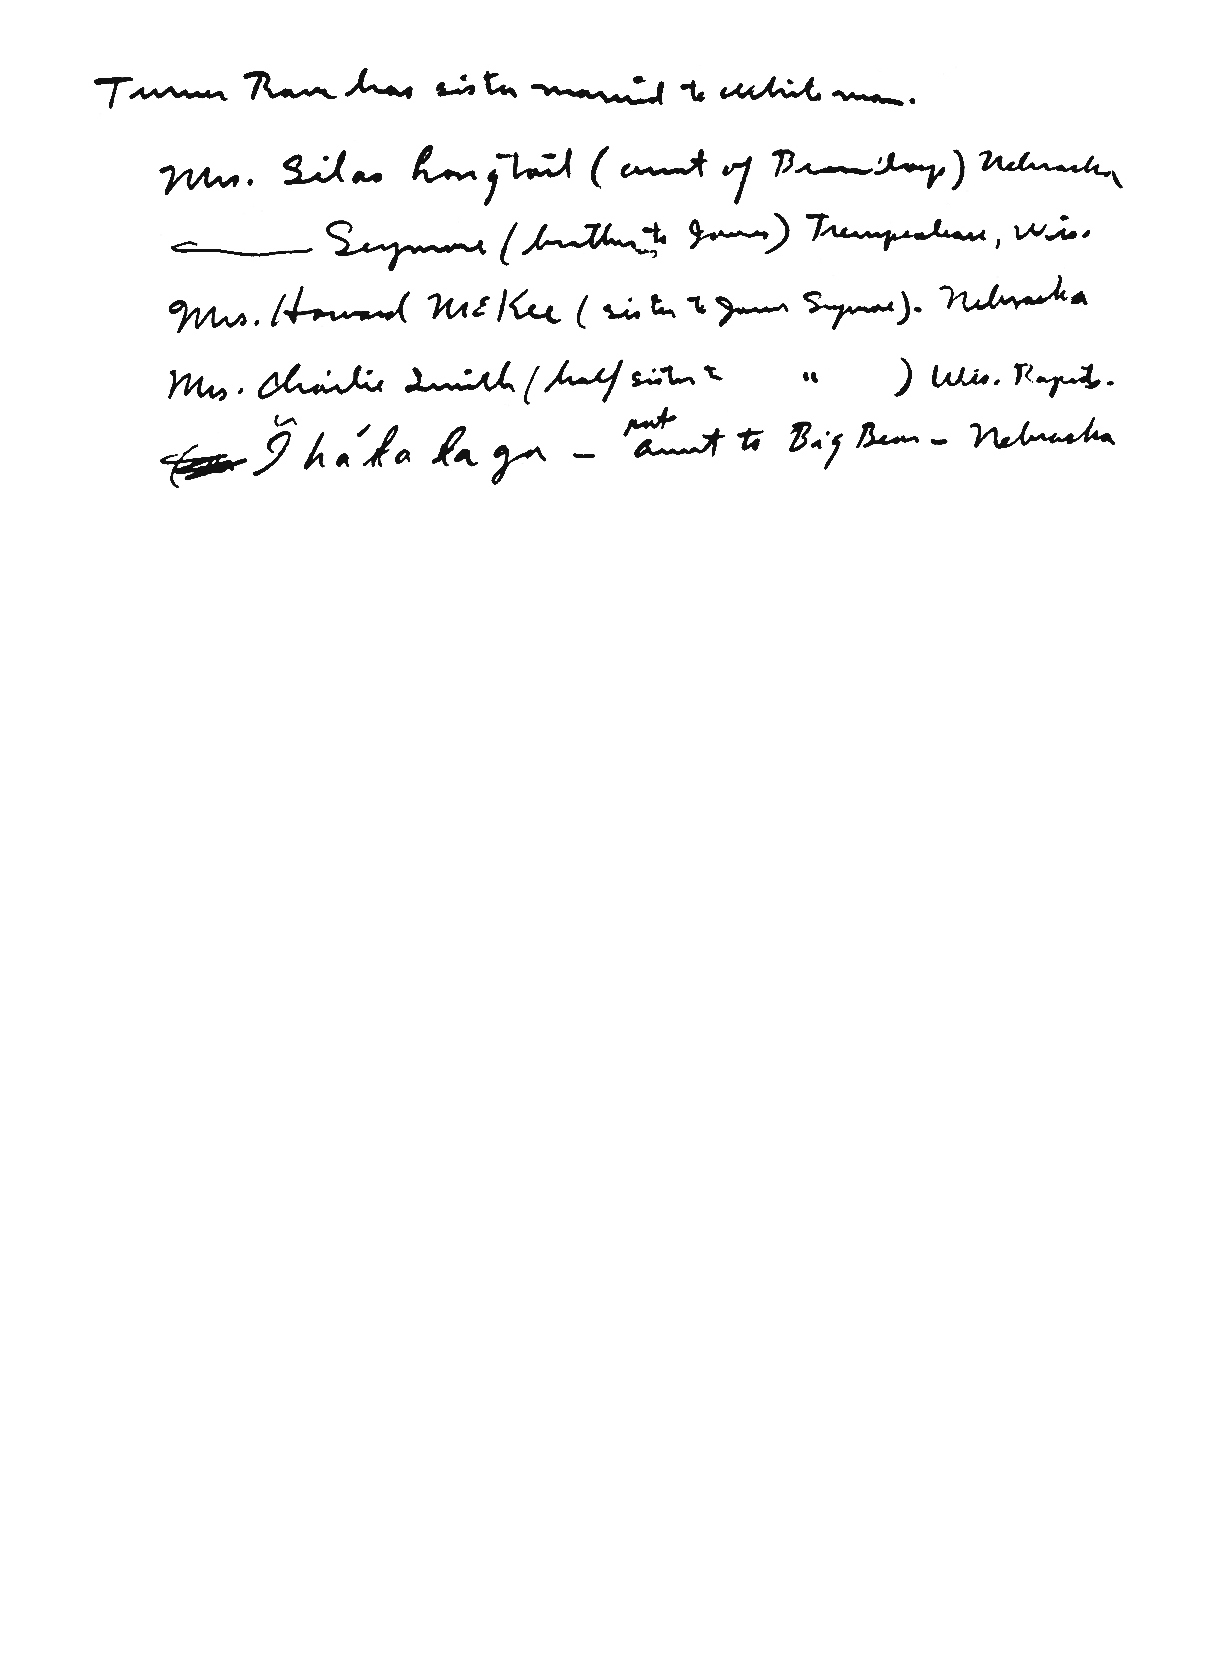 Turner Rave has sister married to white man.
Mrs. Silas Longtail (aunt of) Nebraska
Seymore (brother to James) Trempealeau, Wis.
Mrs. Howard McKee (sister to James Seymore). Nebraska
Mrs. Charlie Smith (half sister to " ) Wis. Rapids.
not
aunt to Big Bear - Nebraska